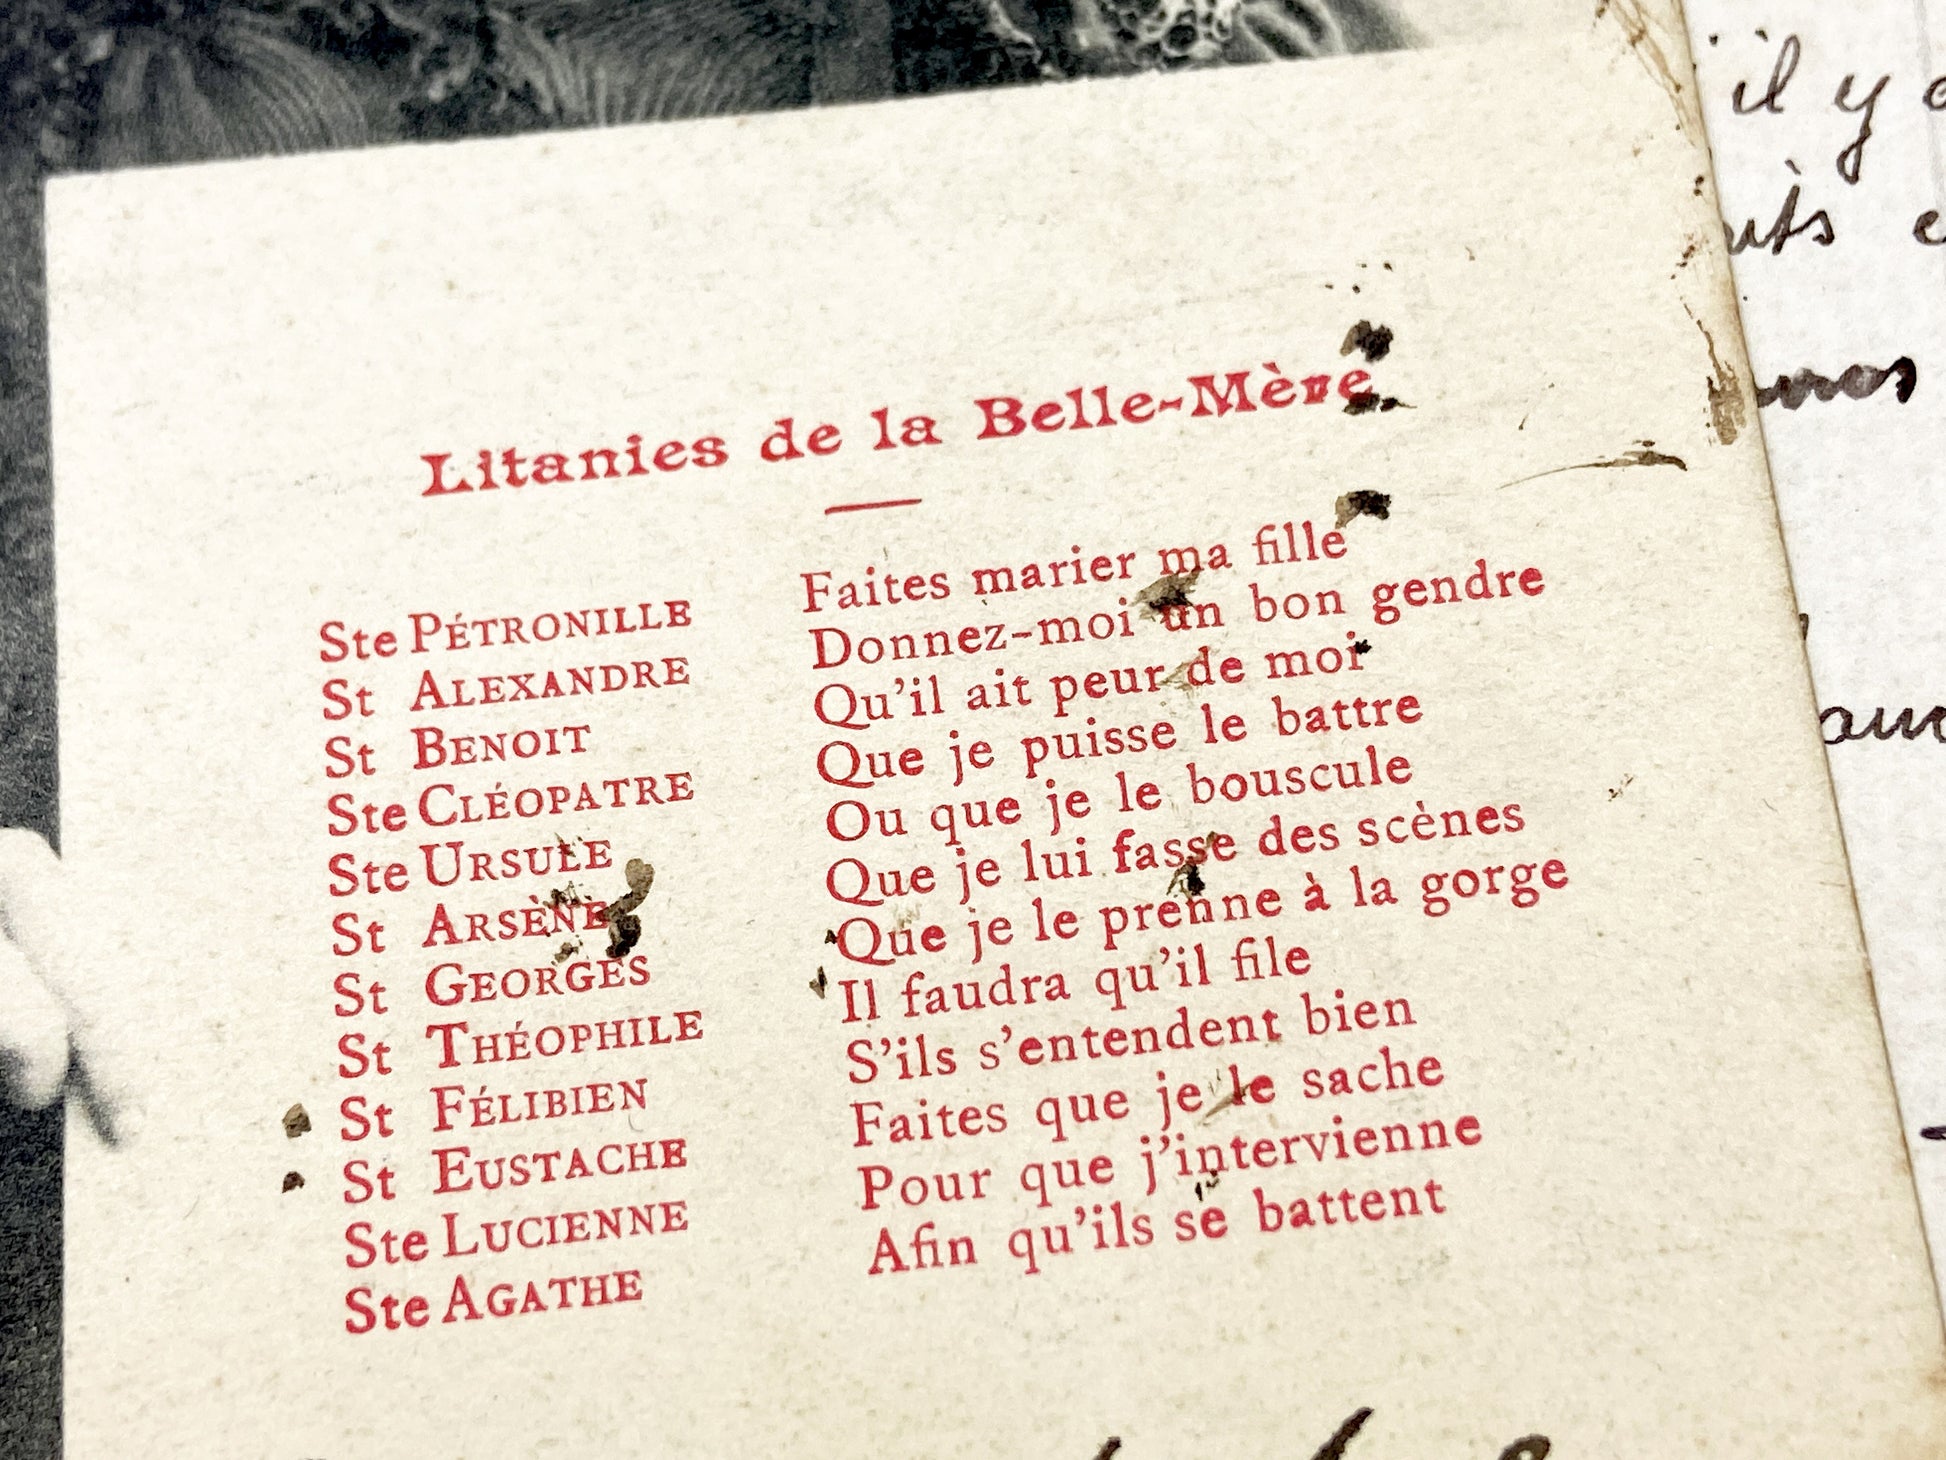 Litanies de la Belle-Mère
Ste PÉTRONILLE Faites marier ma fille
St ALEXANDRE Donnez-moi un bon gendre
St BENOIT Qu'il ait peur de moi
Ste CLÉOPATRE Que je puisse le battre
Ste URSULE Ou que je le bouscule
St ARSÈNE Que je lui fasse des scènes
St GEORGES Que je le prenne à la gorge
St THÉOPHILE Il faudra qu'il file
St FÉLIBIEN S'ils s'entendent bien
St EUSTACHE Faites que je le sache
Ste LUCIENNE Pour que j'intervienne
Ste AGATHE Afin qu'ils se battent
il y